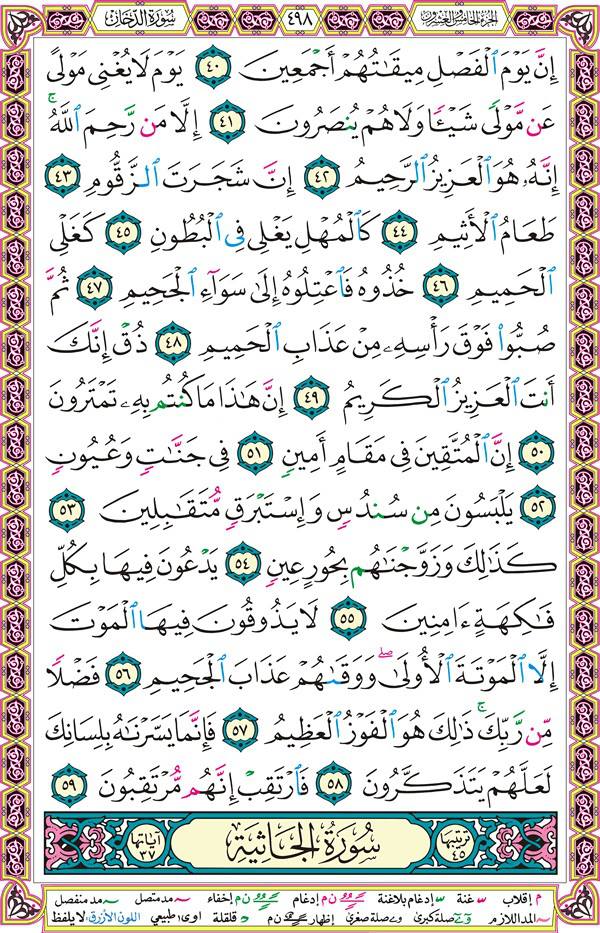 الجزء الخامس والعشرون
٤٩٨
سورة الدخان
إِنَّ يَوْمَ ٱلْفَصْلِ مِيقَٰتُهُمْ أَجْمَعِينَ ٤٠ يَوْمَ لَا يُغْنِى مَوْلًى
عَن مَّوْلًى شَيْـًٔا وَلَا هُمْ يُنصَرُونَ ٤١ إِلَّا مَن رَّحِمَ ٱللَّهُ ۚ
إِنَّهُۥ هُوَ ٱلْعَزِيزُ ٱلرَّحِيمُ ٤٢ إِنَّ شَجَرَتَ ٱلزَّقُّومِ ٤٣
طَعَامُ ٱلْأَثِيمِ ٤٤ كَٱلْمُهْلِ يَغْلِى فِى ٱلْبُطُونِ ٤٥ كَغَلْىِ
ٱلْحَمِيمِ ٤٦ خُذُوهُ فَٱعْتِلُوهُ إِلَىٰ سَوَآءِ ٱلْجَحِيمِ ٤٧ ثُمَّ
صُبُّوا۟ فَوْقَ رَأْسِهِۦ مِنْ عَذَابِ ٱلْحَمِيمِ ٤٨ ذُقْ إِنَّكَ
أَنتَ ٱلْعَزِيزُ ٱلْكَرِيمُ ٤٩ إِنَّ هَٰذَا مَا كُنتُم بِهِۦ تَمْتَرُونَ
٥٠ إِنَّ ٱلْمُتَّقِينَ فِى مَقَامٍ أَمِينٍ ٥١ فِى جَنَّٰتٍ وَعُيُونٍ
٥٢ يَلْبَسُونَ مِن سُندُسٍ وَإِسْتَبْرَقٍ مُّتَقَٰبِلِينَ ٥٣
كَذَٰلِكَ وَزَوَّجْنَٰهُم بِحُورٍ عِينٍ ٥٤ يَدْعُونَ فِيهَا بِكُلِّ
فَٰكِهَةٍ ءَامِنِينَ ٥٥ لَا يَذُوقُونَ فِيهَا ٱلْمَوْتَ
إِلَّا ٱلْمَوْتَةَ ٱلْأُولَىٰ ۖ وَوَقَىٰهُمْ عَذَابَ ٱلْجَحِيمِ ٥٦ فَضْلًا
مِّن رَّبِّكَ ۚ ذَٰلِكَ هُوَ ٱلْفَوْزُ ٱلْعَظِيمُ ٥٧ فَإِنَّمَا يَسَّرْنَٰهُ بِلِسَانِكَ
لَعَلَّهُمْ يَتَذَكَّرُونَ ٥٨ فَٱرْتَقِبْ إِنَّهُم مُّرْتَقِبُونَ ٥٩
ترتيبها ٤٥
سُورَةُ الجَاثِيَةِ
آياتها ٣٧
م إقلاب س غنة س إدغام بلاغنة ن م إدغام ن م إخفاء ~ مد متصل ~ مد منفصل
~ المد اللازم صلة كبرى صلة صغرى إظهار ن م قلقلة اوى: طبيعي اللون الأزرق: لا يلفظ